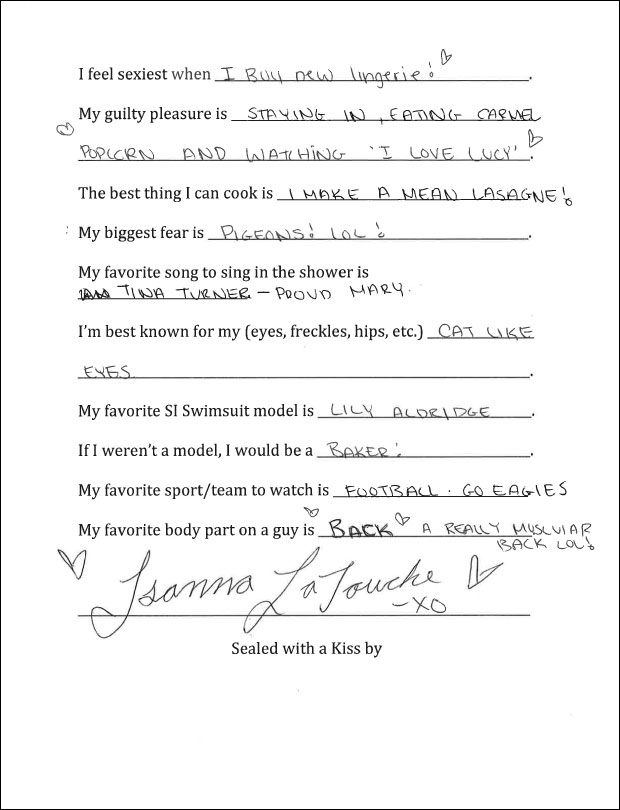 I feel sexiest when I BUY new lingerie! .
My guilty pleasure is STAYING IN, EATING CARMEL
POPCORN AND WATCHING 'I LOVE LUCY' .
The best thing I can cook is I MAKE A MEAN LASAGNE!
My biggest fear is PIGEONS! LOL! .
My favorite song to sing in the shower is
TINA TURNER – PROUD MARY.
I'm best known for my (eyes, freckles, hips, etc.) CAT LIKE
EYES .
My favorite SI Swimsuit model is LILY ALDRIDGE .
If I weren't a model, I would be a BAKER! .
My favorite sport/team to watch is FOOTBALL. GO EAGLES
My favorite body part on a guy is BACK A REALLY MUSCULAR
BACK LOL!
Isanna LaTouche
–XO
Sealed with a Kiss by